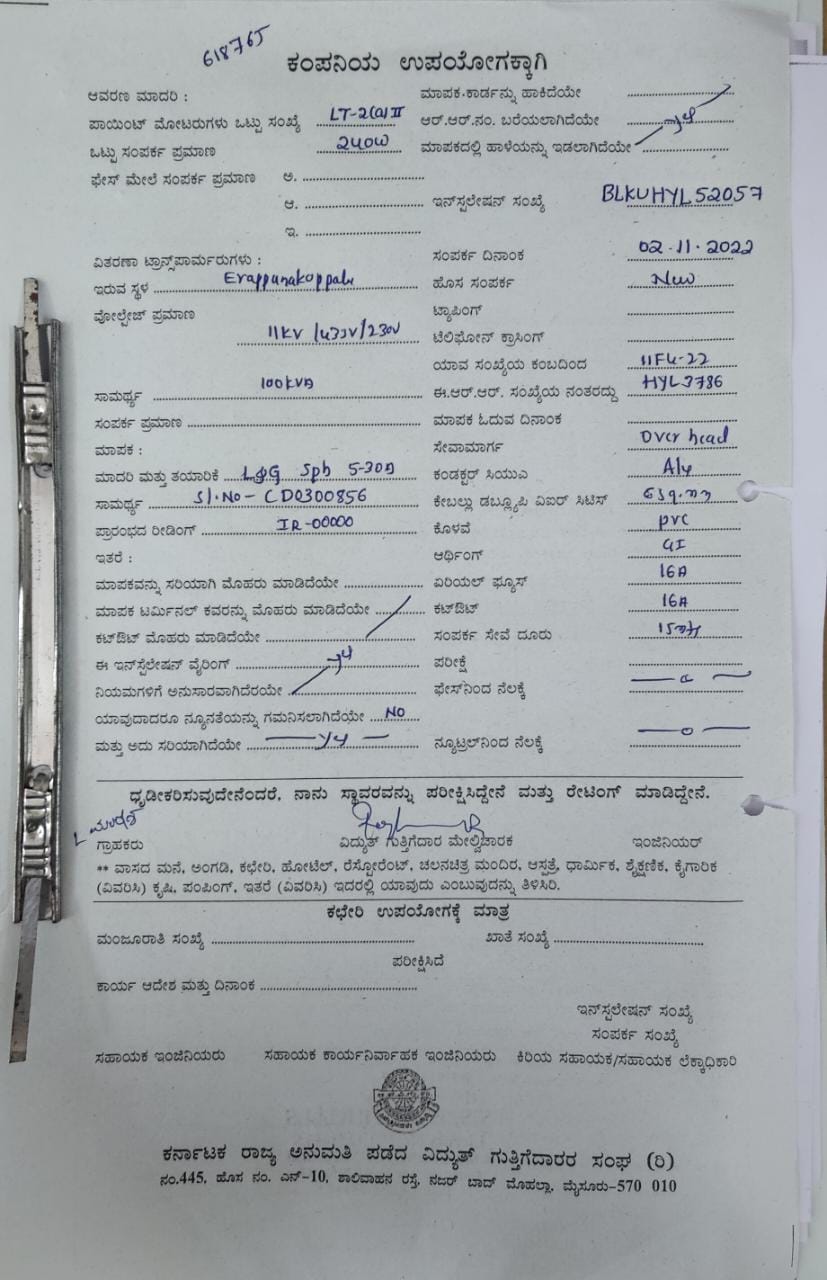 618765
ಕಂಪನಿಯ ಉಪಯೋಗಕ್ಕಾಗಿ
ಆವರಣ ಮಾದರಿ : ಮಾಪಕ-ಕಾರ್ಡನ್ನು ಹಾಕಿದೆಯೇ ....................
ಪಾಯಿಂಟ್ ಮೋಟರುಗಳು ಒಟ್ಟು ಸಂಖ್ಯೆ LT-2(a)II ಆರ್.ಆರ್.ನಂ. ಬರೆಯಲಾಗಿದೆಯೇ
ಒಟ್ಟು ಸಂಪರ್ಕ ಪ್ರಮಾಣ 240W ಮಾಪಕದಲ್ಲಿ ಹಾಳೆಯನ್ನು ಇಡಲಾಗಿದೆಯೇ ....................
ಫೇಸ್ ಮೇಲೆ ಸಂಪರ್ಕ ಪ್ರಮಾಣ ಅ. ..............................
ಆ. .............................. ಇನ್‌ಸ್ಟಲೇಷನ್ ಸಂಖ್ಯೆ BLKUHYL52057
ಇ. ..............................
ವಿತರಣಾ ಟ್ರಾನ್ಸ್‌ಪಾರ್ಮರುಗಳು : ಸಂಪರ್ಕ ದಿನಾಂಕ 02.11.2022
ಇರುವ ಸ್ಥಳ Erappanakoppalu ಹೊಸ ಸಂಪರ್ಕ New
ವೋಲ್ಟೇಜ್ ಪ್ರಮಾಣ ಟ್ಯಾಪಿಂಗ್ ....................
11KV /433V/230V ಟೆಲಿಫೋನ್ ಕ್ರಾಸಿಂಗ್ ....................
ಯಾವ ಸಂಖ್ಯೆಯ ಕಂಬದಿಂದ
ಸಾಮರ್ಥ್ಯ 100KVA ಈ.ಆರ್.ಆರ್. ಸಂಖ್ಯೆಯ ನಂತರದ್ದು HYL3786
ಸಂಪರ್ಕ ಪ್ರಮಾಣ .............................. ಮಾಪಕ ಓದುವ ದಿನಾಂಕ ....................
ಮಾಪಕ : ಸೇವಾಮಾರ್ಗ Over head
ಮಾದರಿ ಮತ್ತು ತಯಾರಿಕೆ L&G Sph 5-30A ಕಂಡಕ್ಟರ್ ಸಿಯುಎ Aly
ಸಾಮರ್ಥ್ಯ Sl.No- CD0300856 ಕೇಬಲ್ಲು ಡಬ್ಲ್ಯೂಪಿ ವಿಐರ್ ಸಿಟಿಸ್
ಪ್ರಾರಂಭದ ರೀಡಿಂಗ್ IR-00000 ಕೊಳವೆ PVC
ಇತರೆ : ಆರ್ಥಿಂಗ್ GI
ಮಾಪಕವನ್ನು ಸರಿಯಾಗಿ ಮೊಹರು ಮಾಡಿದೆಯೇ .................... ಏರಿಯಲ್ ಫ್ಯೂಸ್ 16A
ಮಾಪಕ ಟರ್ಮಿನಲ್ ಕವರನ್ನು ಮೊಹರು ಮಾಡಿದೆಯೇ ............ ಕಟ್‌ಔಟ್ 16A
ಕಟ್‌ಔಟ್ ಮೊಹರು ಮಾಡಿದೆಯೇ .............................. ಸಂಪರ್ಕ ಸೇವೆ ದೂರು
ಈ ಇನ್‌ಸ್ಟೆಲೇಷನ್ ವೈರಿಂಗ್ .............................. ಪರೀಕ್ಷೆ ....................
ನಿಯಮಗಳಿಗೆ ಅನುಸಾರವಾಗಿದೆರಯೇ .................... ಫೇಸ್‌ನಿಂದ ನೆಲಕ್ಕೆ — 0 —
ಯಾವುದಾದರೂ ನ್ಯೂನತೆಯನ್ನು ಗಮನಿಸಲಾಗಿದೆಯೇ NO
ಮತ್ತು ಅದು ಸರಿಯಾಗಿದೆಯೇ ನ್ಯೂಟ್ರಲ್‌ನಿಂದ ನೆಲಕ್ಕೆ — 0 —
ಧೃಡೀಕರಿಸುವುದೇನೆಂದರೆ, ನಾನು ಸ್ಥಾವರವನ್ನು ಪರೀಕ್ಷಿಸಿದ್ದೇನೆ ಮತ್ತು ರೇಟಿಂಗ್ ಮಾಡಿದ್ದೇನೆ.
ಗ್ರಾಹಕರು ವಿದ್ಯುತ್ ಗುತ್ತಿಗೆದಾರ ಮೇಲ್ವಿಚಾರಕ ಇಂಜಿನಿಯರ್
** ವಾಸದ ಮನೆ, ಅಂಗಡಿ, ಕಛೇರಿ, ಹೋಟೆಲ್, ರೆಸ್ಟೋರೆಂಟ್, ಚಲನಚಿತ್ರ ಮಂದಿರ, ಆಸ್ಪತ್ರೆ, ಧಾರ್ಮಿಕ, ಶೈಕ್ಷಣಿಕ, ಕೈಗಾರಿಕ
(ವಿವರಿಸಿ) ಕೃಷಿ, ಪಂಪಿಂಗ್, ಇತರೆ (ವಿವರಿಸಿ) ಇದರಲ್ಲಿ ಯಾವುದು ಎಂಬುವುದನ್ನು ತಿಳಿಸಿರಿ.
ಕಛೇರಿ ಉಪಯೋಗಕ್ಕೆ ಮಾತ್ರ
ಮಂಜೂರಾತಿ ಸಂಖ್ಯೆ .............................. ಖಾತೆ ಸಂಖ್ಯೆ ..............................
ಪರೀಕ್ಷಿಸಿದೆ
ಕಾರ್ಯ ಆದೇಶ ಮತ್ತು ದಿನಾಂಕ ..............................
ಇನ್‌ಸ್ಪಲೇಷನ್ ಸಂಖ್ಯೆ
ಸಂಪರ್ಕ ಸಂಖ್ಯೆ
ಸಹಾಯಕ ಇಂಜಿನಿಯರು ಸಹಾಯಕ ಕಾರ್ಯನಿರ್ವಾಹಕ ಇಂಜಿನಿಯರು ಕಿರಿಯ ಸಹಾಯಕ/ಸಹಾಯಕ ಲೆಕ್ಕಾಧಿಕಾರಿ
ಕರ್ನಾಟಕ ರಾಜ್ಯ ಅನುಮತಿ ಪಡೆದ ವಿದ್ಯುತ್ ಗುತ್ತಿಗೆದಾರರ ಸಂಘ (ರಿ)
ನಂ.445, ಹೊಸ ನಂ. ಎನ್-10, ಶಾಲಿವಾಹನ ರಸ್ತೆ, ನಜರ್ ಬಾದ್ ಮೊಹಲ್ಲಾ, ಮೈಸೂರು-570 010